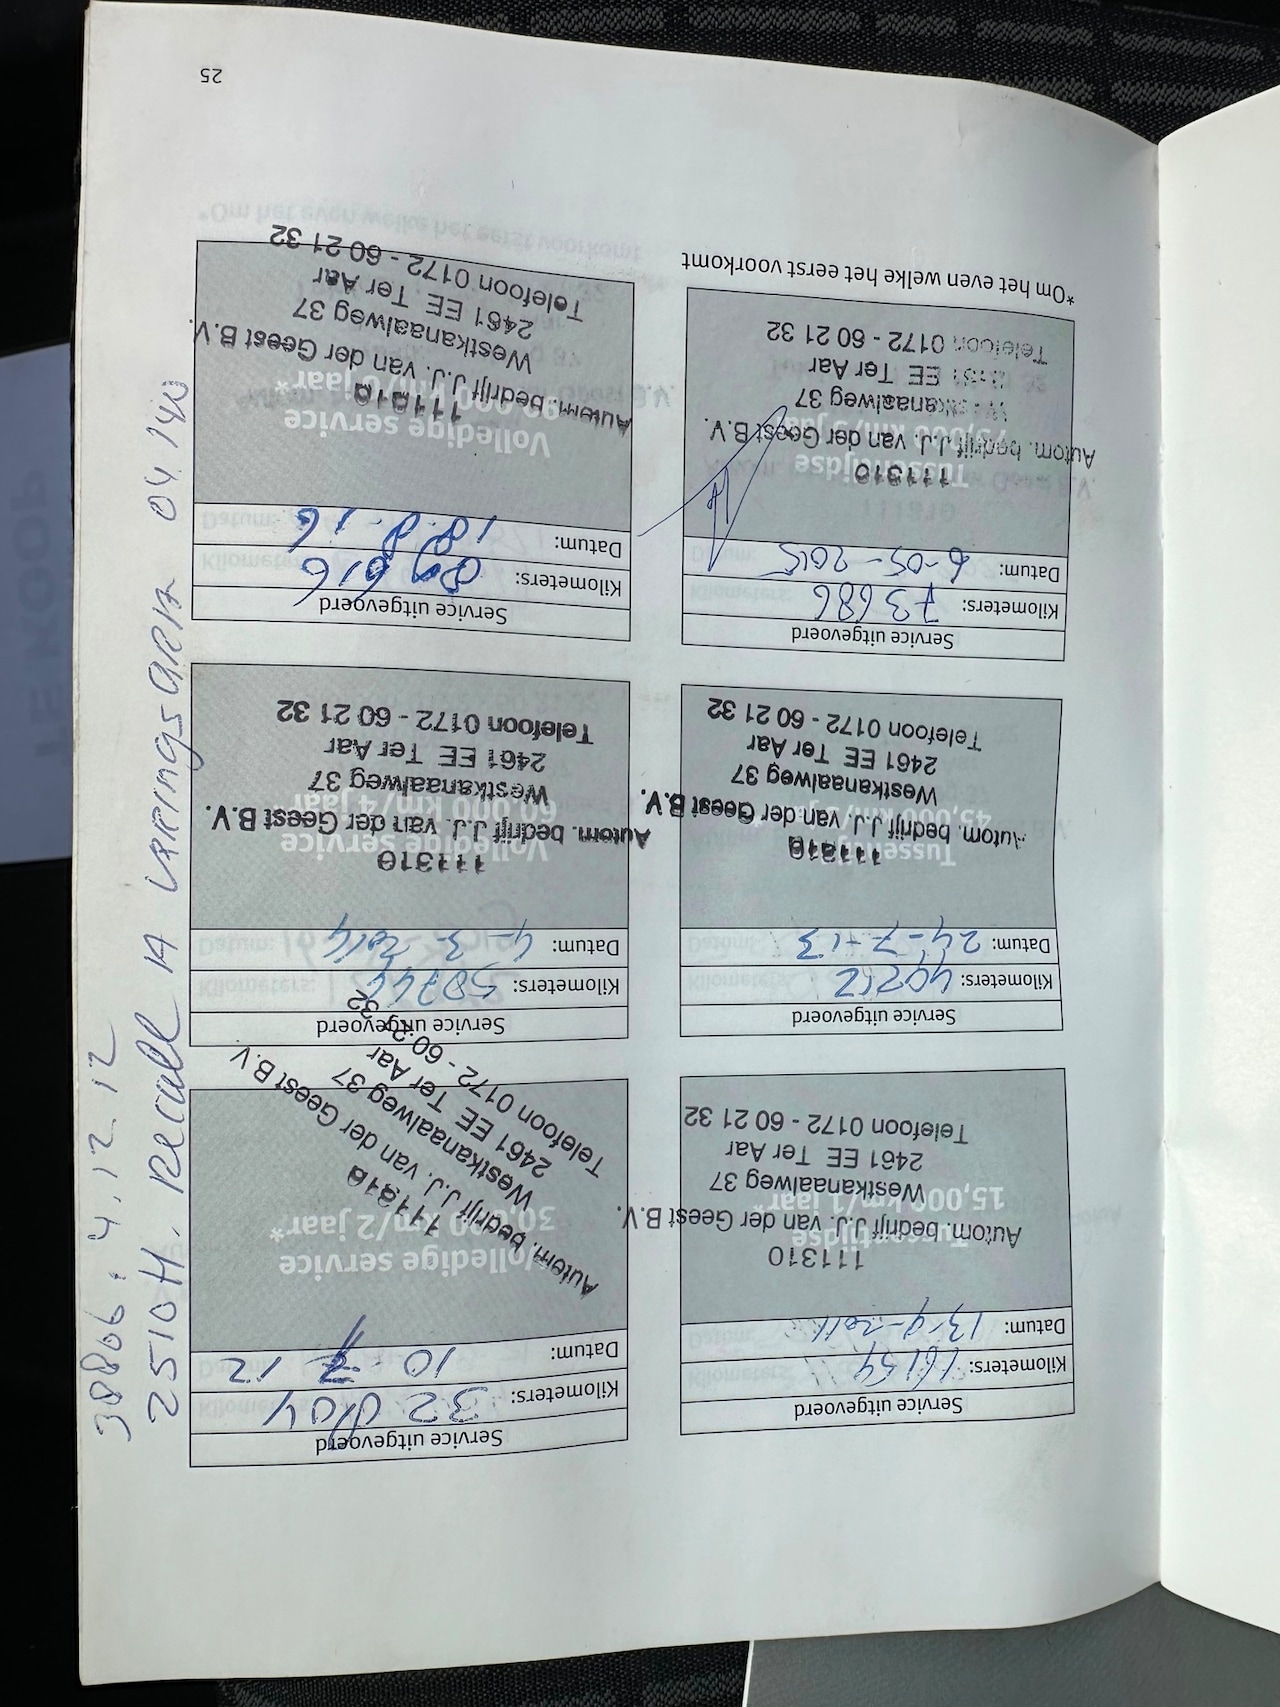 Service uitgevoerd
Kilometers:
Datum: 13-9-2011
111310
Tussentijdse
Autom. bedrijf J.J. van der Geest B.V.
15,000 km/1 jaar*
Westkanaalweg 37
2461 EE Ter Aar
Telefoon 0172 - 60 21 32
Service uitgevoerd
Kilometers: 32
Datum: 10 7 12
Volledige service
30,000 km/2 jaar*
111310
Autom. bedrijf J.J. van der Geest B.V.
Westkanaalweg 37
2461 EE Ter Aar
Telefoon 0172 - 60 21 32
Service uitgevoerd
Kilometers:
Datum: 24-7-13
111310
Autom. bedrijf J.J. van der Geest B.V.
45,000 km/3
Westkanaalweg 37
2461 EE Ter Aar
Telefoon 0172 - 60 21 32
Service uitgevoerd
Kilometers: 58744
Datum: 4-3-2014
111310
Volledige service
Autom. bedrijf J.J. van der Geest B.V.
60,000 km/4 jaar*
Westkanaalweg 37
2461 EE Ter Aar
Telefoon 0172 - 60 21 32
Service uitgevoerd
Kilometers: 73686
Datum: 6-05-2015
111310
Tussentijdse
Autom. bedrijf J.J. van der Geest B.V.
75,000 km/5 jaar*
Westkanaalweg 37
2461 EE Ter Aar
Telefoon 0172 - 60 21 32
*Om het even welke het eerst voorkomt
Service uitgevoerd
Kilometers: 89616
Datum: 18.8.16
Volledige service
111310
90,000 km/6 jaar*
Autom. bedrijf J.J. van der Geest B.V.
Westkanaalweg 37
2461 EE Ter Aar
Telefoon 0172 - 60 21 32
38806 : 4.12.12
2510H. Recall
25